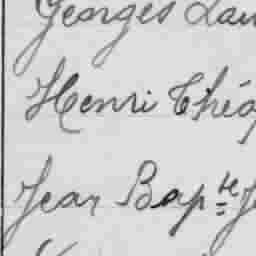 Georges Lau
Henri Théo
Jean Bapte J